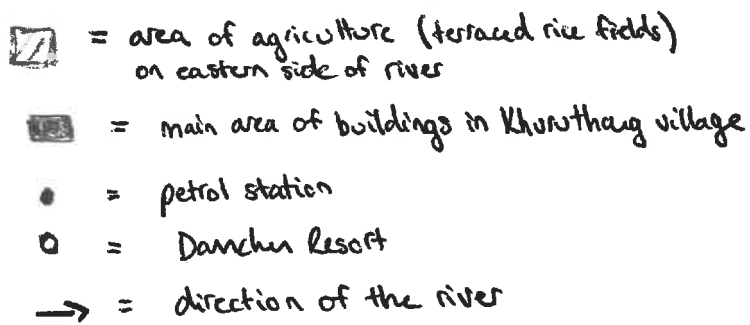 = area of agriculture (terraced rice fields)
on eastern side of river
= main area of buildings in Khuruthang village
= petrol station
= Damchen Resort
→ = direction of the river